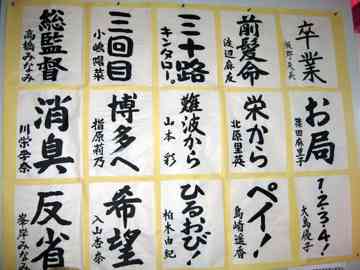 卒業
板野友美
前髪命
渡辺麻友
三十路
キンタロー。
三回目
小嶋陽菜
総監督
高橋みなみ
お局
篠田麻里子
栄から
北原里英
難波から
山本彩
博多へ
指原莉乃
消臭
川栄李奈
1・2・3・4!
大島優子
ペイ!
島崎遥香
ひるおび!
柏木由紀
希望
入山杏奈
反省
峯岸みなみ